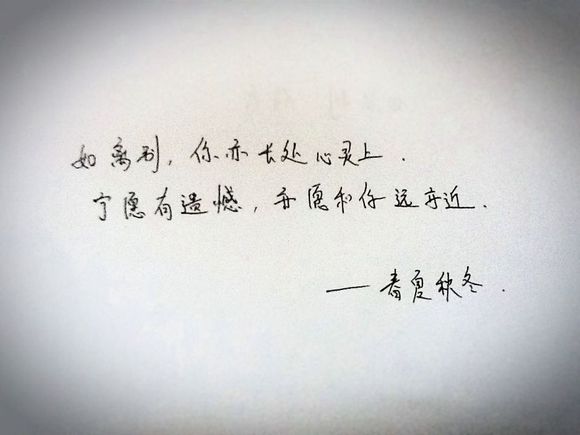 如离别，你亦长处心灵上．
宁愿有遗憾，亦愿和你远亦近．
—— 春夏秋冬．